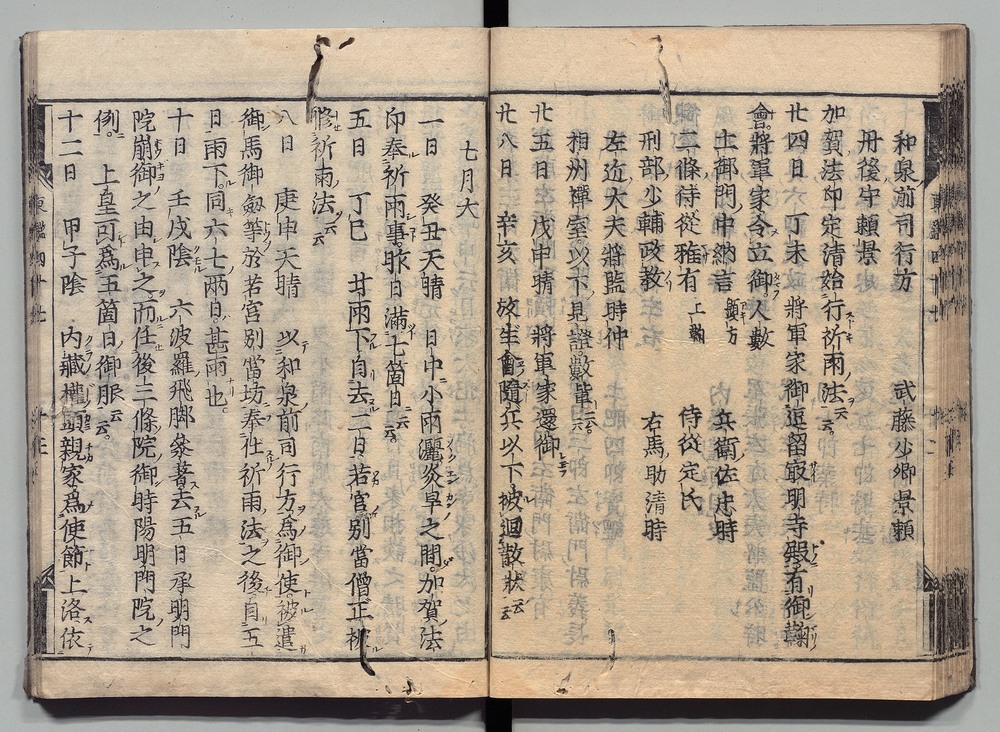 和泉前司行方 武藤少卿景頼
丹後守頼景
加賀法印定清始行祈雨法云云
廿四日 丁未 將軍家御逗留最明寺殿有御鞠
會將軍家令立御人數
土御門中納言顯方 兵衞佐忠時
二條侍從雅有上鞠 侍從定氏
刑部少輔政教 右馬助清時
左近大夫將監時仲
相州禪室以下見證數輩云云
廿五日 戊申晴 將軍家還御
廿八日 辛亥 放生會隨兵以下被迴散狀云云
七月大
一日 癸丑天晴 日中小雨灑炎旱之間加賀法
印奉祈雨事昨日滿七箇日云云
五日 丁巳 甘雨下自去二日若宮別當僧正
修祈雨法云云
八日 庚申天晴 以和泉前司行方爲御使被遣
御馬御劔等於若宮別當坊奉仕祈雨法之後自五
日雨下同六七兩日甚雨也
十日 壬戌陰 六波羅飛脚參著去五日承明門
院崩御之由申之而任後二條院御時陽明門院之
例 上皇可爲五箇日御服云云
十二日 甲子陰 內藏權頭親家爲使節上洛依